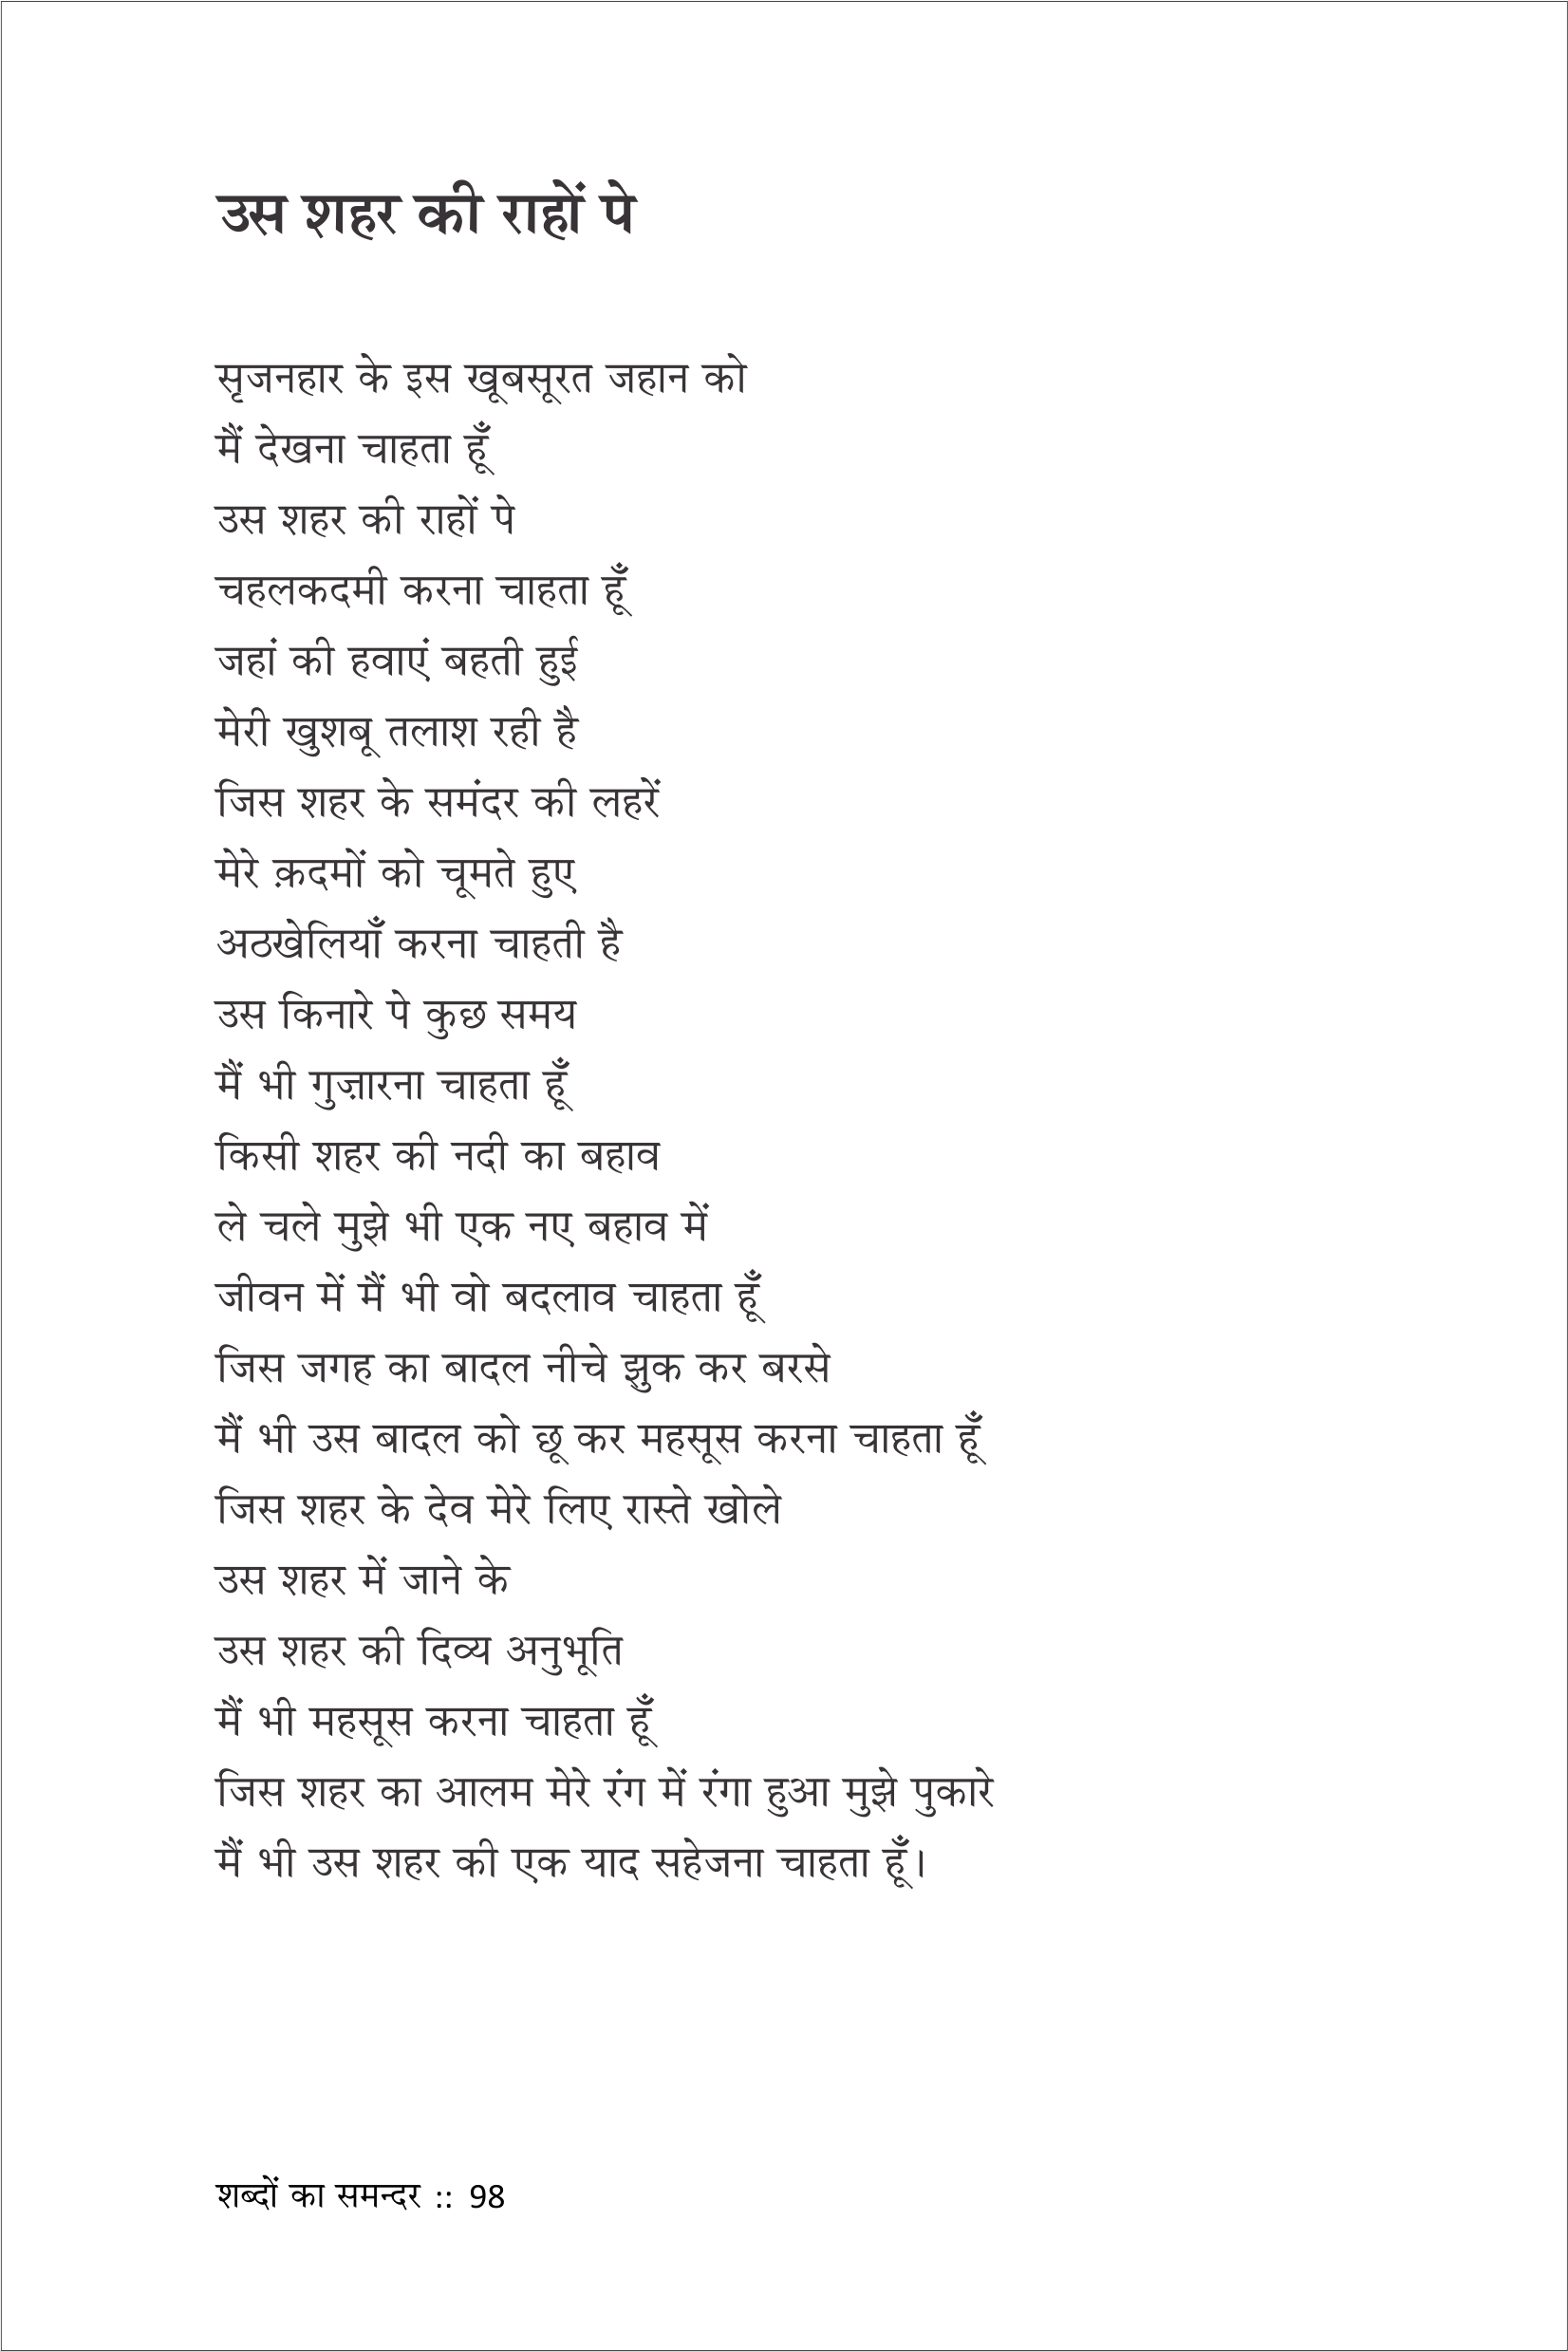 उस शहर की राहों पे
सृजनहार के इस खूबसूरत जहान को
मैं देखना चाहता हूँ
उस शहर की राहों पे
चहलकदमी करना चाहता हूँ
जहां की हवाएं बहती हुई
मेरी खुशबू तलाश रही है
जिस शहर के समंदर की लहरें
मेरे क़दमों को चूमते हुए
अठखेलियाँ करना चाहती है
उस किनारे पे कुछ समय
मैं भी गुज़ारना चाहता हूँ
किसी शहर की नदी का बहाव
ले चले मुझे भी एक नए बहाव में
जीवन में मैं भी वो बदलाव चाहता हूँ
जिस जगह का बादल नीचे झुक कर बरसे
मैं भी उस बादल को छू कर महसूस करना चाहता हूँ
जिस शहर के देव मेरे लिए रास्ते खोले
उस शहर में जाने के
उस शहर की दिव्य अनुभूति
मैं भी महसूस करना चाहता हूँ
जिस शहर का आलम मेरे रंग में रंगा हुआ मुझे पुकारे
मैं भी उस शहर की एक याद सहेजना चाहता हूँ।
शब्दों का समन्दर :: 98